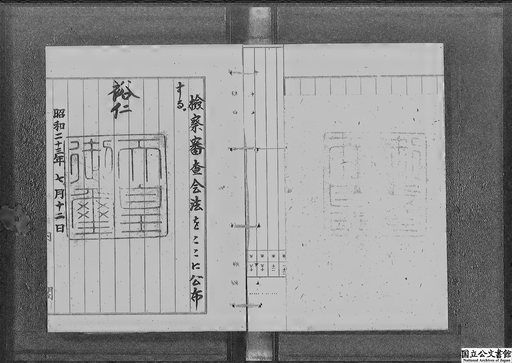 検察審査会法をここに公布
する。
裕仁
天皇御璽
昭和二十三年七月十二日
国立公文書館
National Archives of Japan